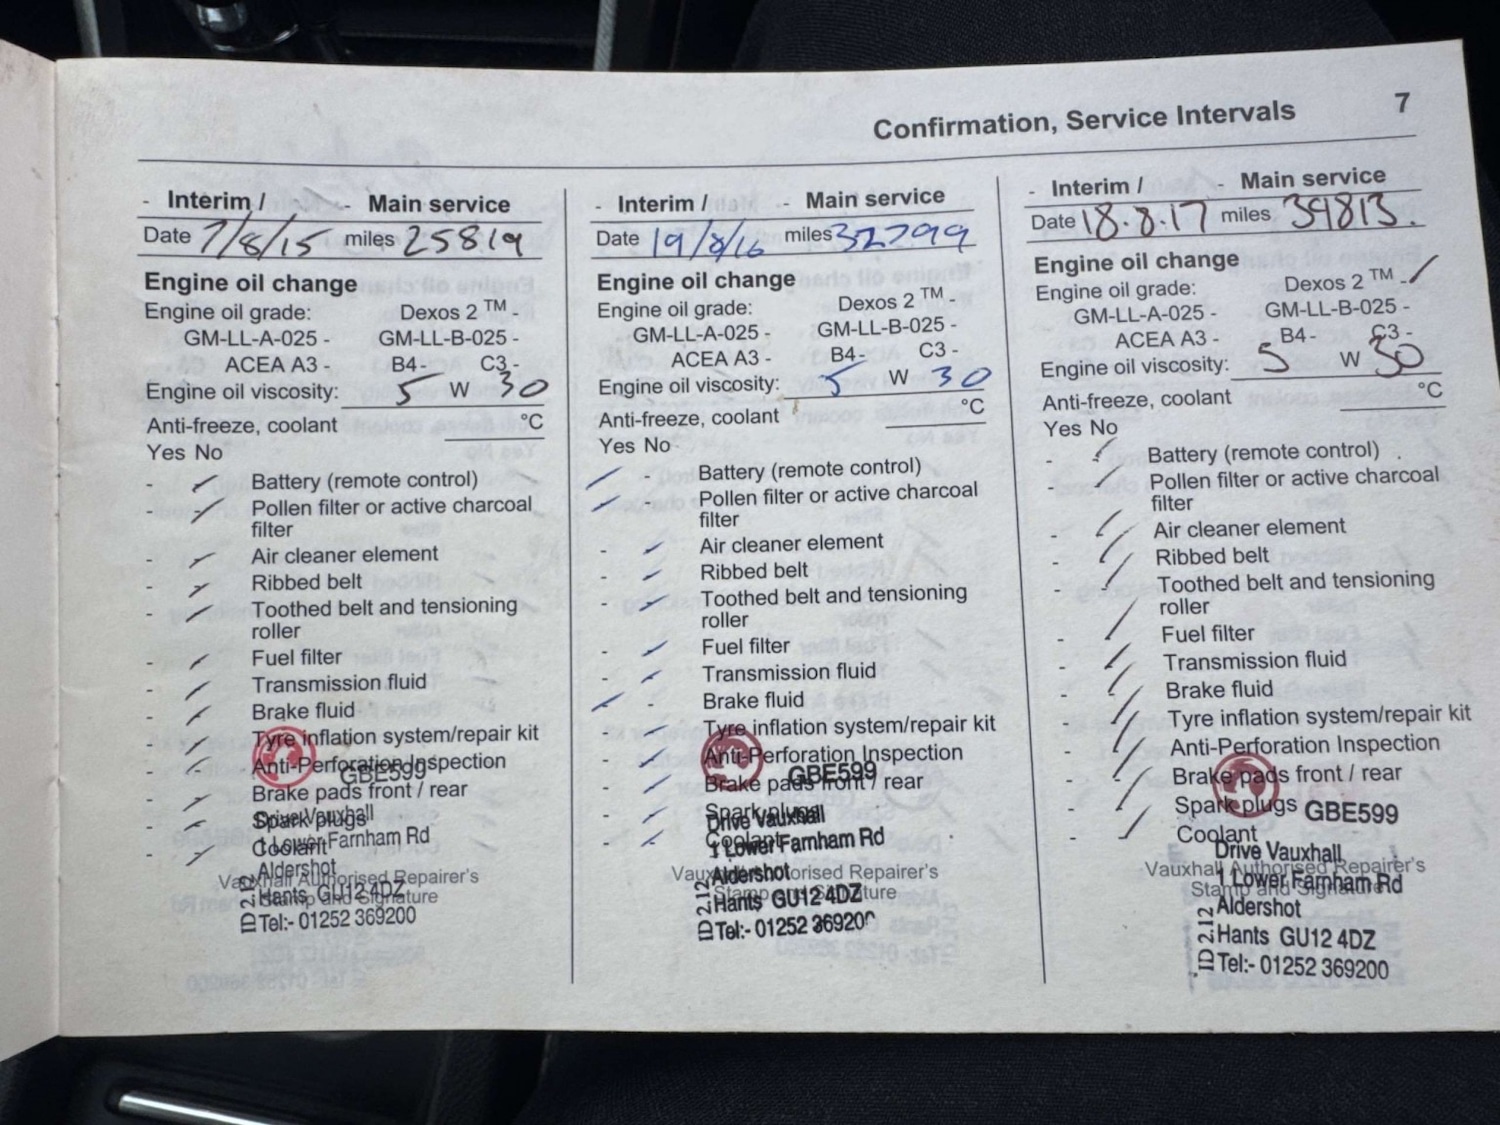 Confirmation, Service Intervals 7
- Interim / - Main service
Date 7/8/15 miles 25819
Engine oil change
Engine oil grade: Dexos 2 ™ -
GM-LL-A-025 - GM-LL-B-025 -
ACEA A3 - B4- C3 -
Engine oil viscosity: 5 W 30
Anti-freeze, coolant °C
Yes No
- Battery (remote control)
- Pollen filter or active charcoal
filter
- Air cleaner element
- Ribbed belt
- Toothed belt and tensioning
roller
- Fuel filter
- Transmission fluid
- Brake fluid
- Tyre inflation system/repair kit
- Anti-Perforation Inspection
GBE599
- Brake pads front / rear
Drive Vauxhall
- Spark plugs
1 Lower Farnham Rd
- Coolant
Aldershot
Vauxhall Authorised Repairer's
Hants GU12 4DZ
Stamp and Signature
Tel:- 01252 369200
ID 2.12
- Interim / - Main service
Date 19/8/16 miles 32799
Engine oil change
Engine oil grade: Dexos 2 ™ -
GM-LL-A-025 - GM-LL-B-025 -
ACEA A3 - B4- C3 -
Engine oil viscosity: 5 W 30
Anti-freeze, coolant °C
Yes No
- Battery (remote control)
- Pollen filter or active charcoal
filter
- Air cleaner element
- Ribbed belt
- Toothed belt and tensioning
roller
- Fuel filter
- Transmission fluid
- Brake fluid
- Tyre inflation system/repair kit
- Anti-Perforation Inspection
GBE599
- Brake pads front / rear
- Spark plugs
Drive Vauxhall
- Coolant
1 Lower Farnham Rd
Aldershot
Vauxhall Authorised Repairer's
Stamp and Signature
Hants GU12 4DZ
Tel:- 01252 369200
ID 2.12
- Interim / - Main service
Date 18.8.17 miles 39813.
Engine oil change
Engine oil grade: Dexos 2 ™ -
GM-LL-A-025 - GM-LL-B-025 -
ACEA A3 - B4- C3 -
Engine oil viscosity: 5 W 30
Anti-freeze, coolant °C
Yes No
- Battery (remote control)
- Pollen filter or active charcoal
filter
- Air cleaner element
- Ribbed belt
- Toothed belt and tensioning
roller
- Fuel filter
- Transmission fluid
- Brake fluid
- Tyre inflation system/repair kit
- Anti-Perforation Inspection
- Brake pads front / rear
- Spark plugs
GBE599
- Coolant
Drive Vauxhall
Vauxhall Authorised Repairer's
1 Lower Farnham Rd
Stamp and Signature
Aldershot
Hants GU12 4DZ
Tel:- 01252 369200
ID 2.12